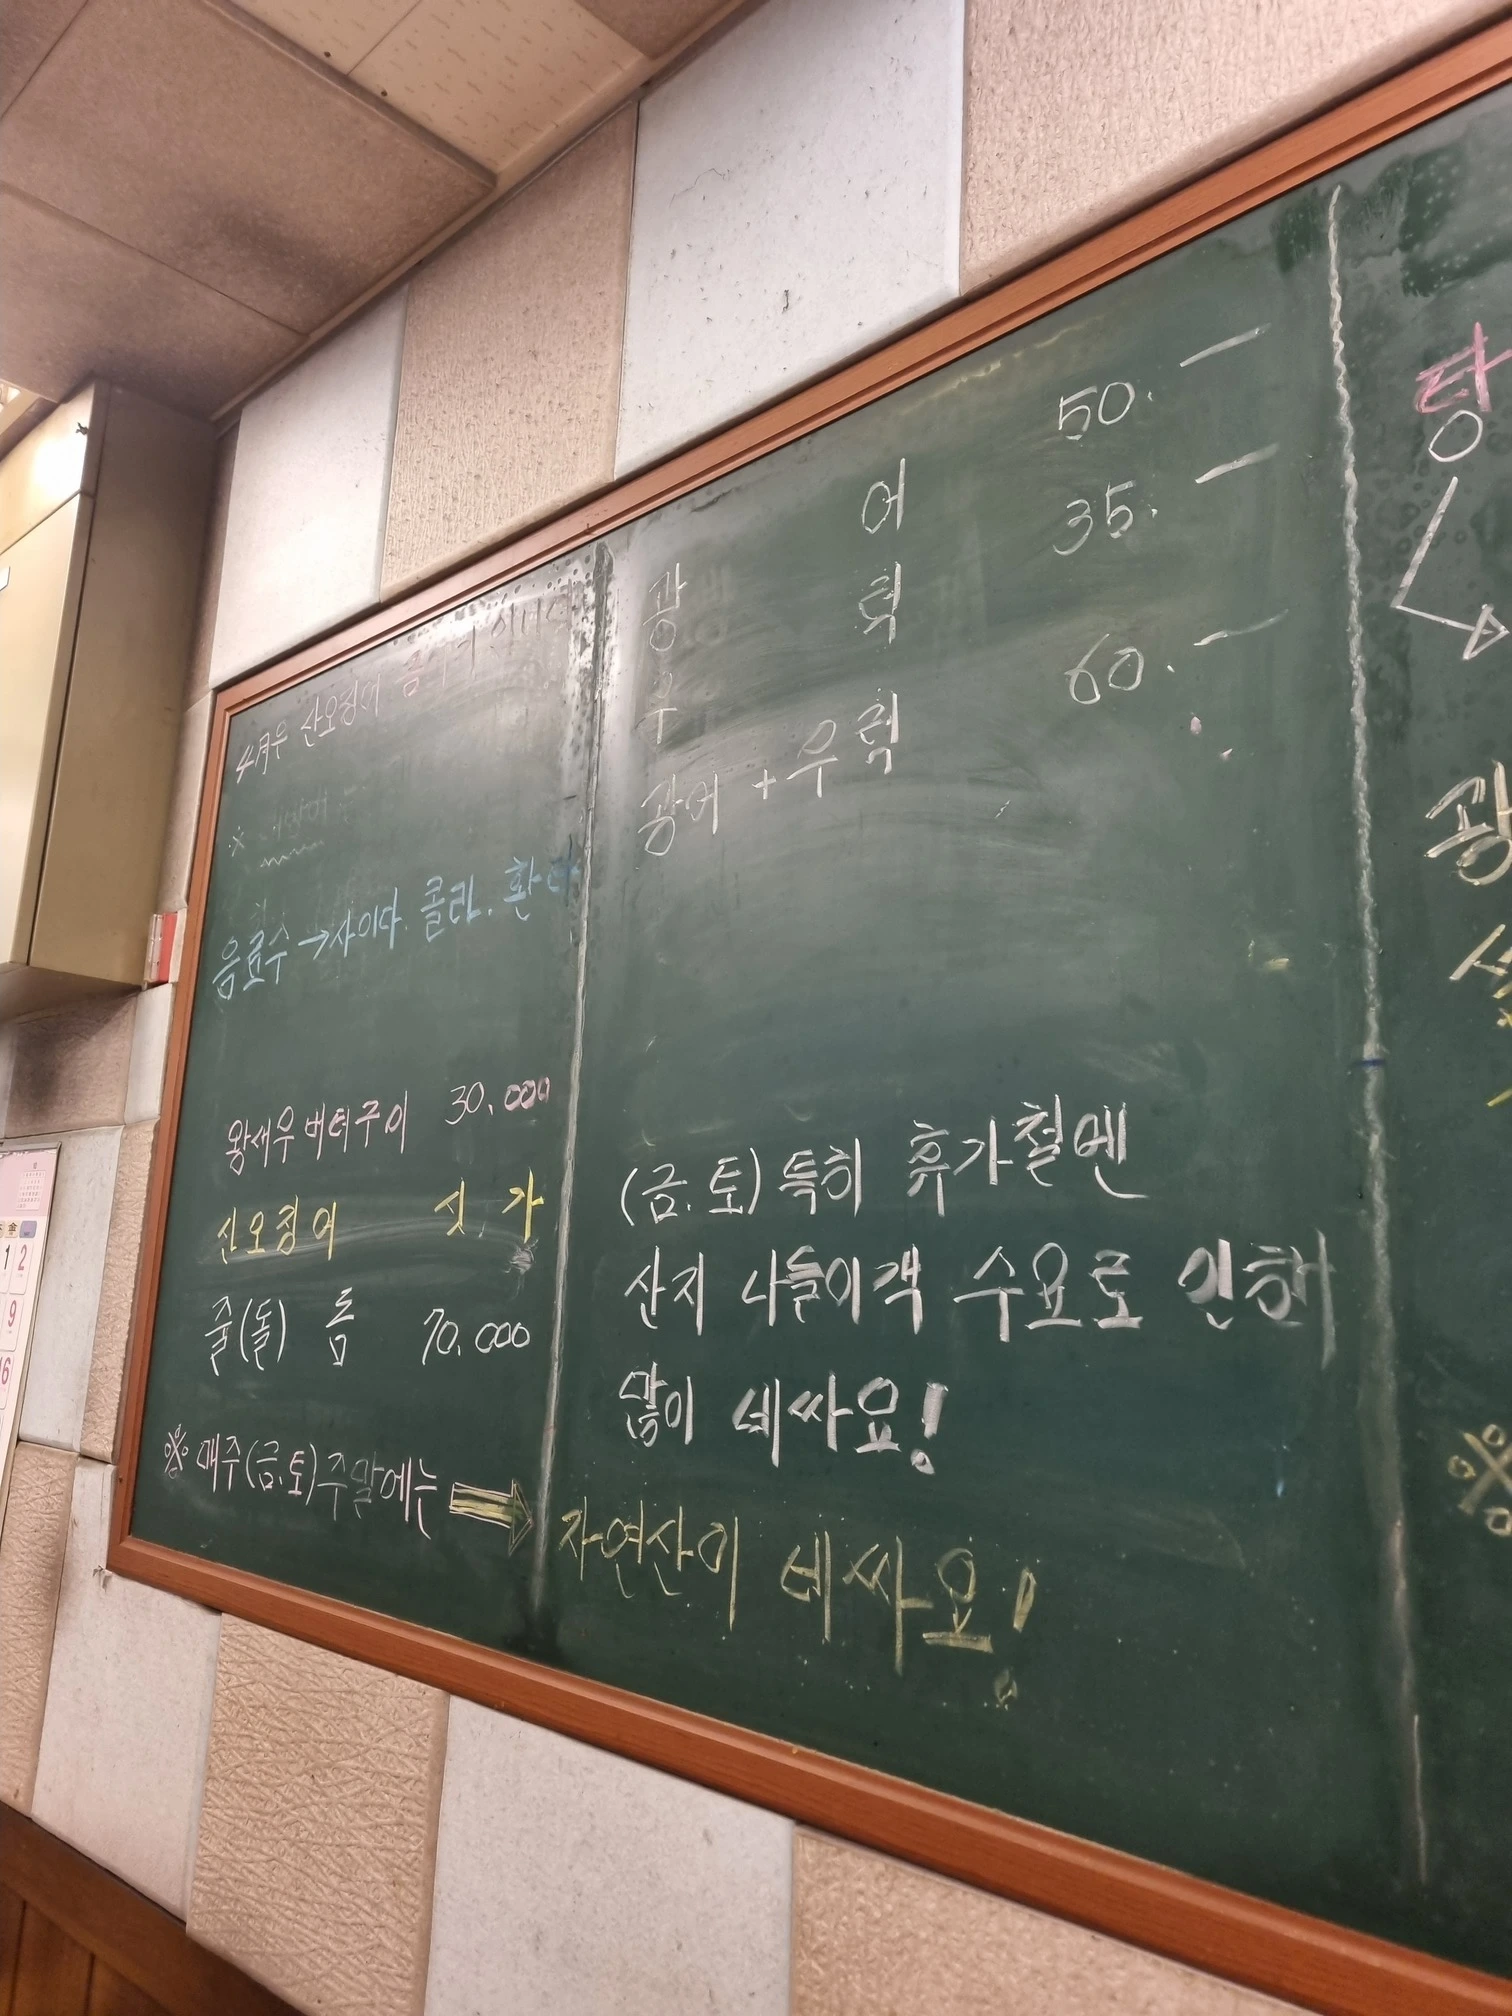 4月 산오징어
음료수→사이다. 콜라. 환타
왕새우버터구이 30.000
산오징어 싯가
줄(돌) 돔 70.000
※ 매주(금.토)주말에는
광 어 50.—
우 럭 35.—
광어+우럭 60.—
(금.토)특히 휴가철엔
산지 나들이객 수요로 인해
많이 비싸요!
자연산이 비싸요!
탕
광
1 2
9
16